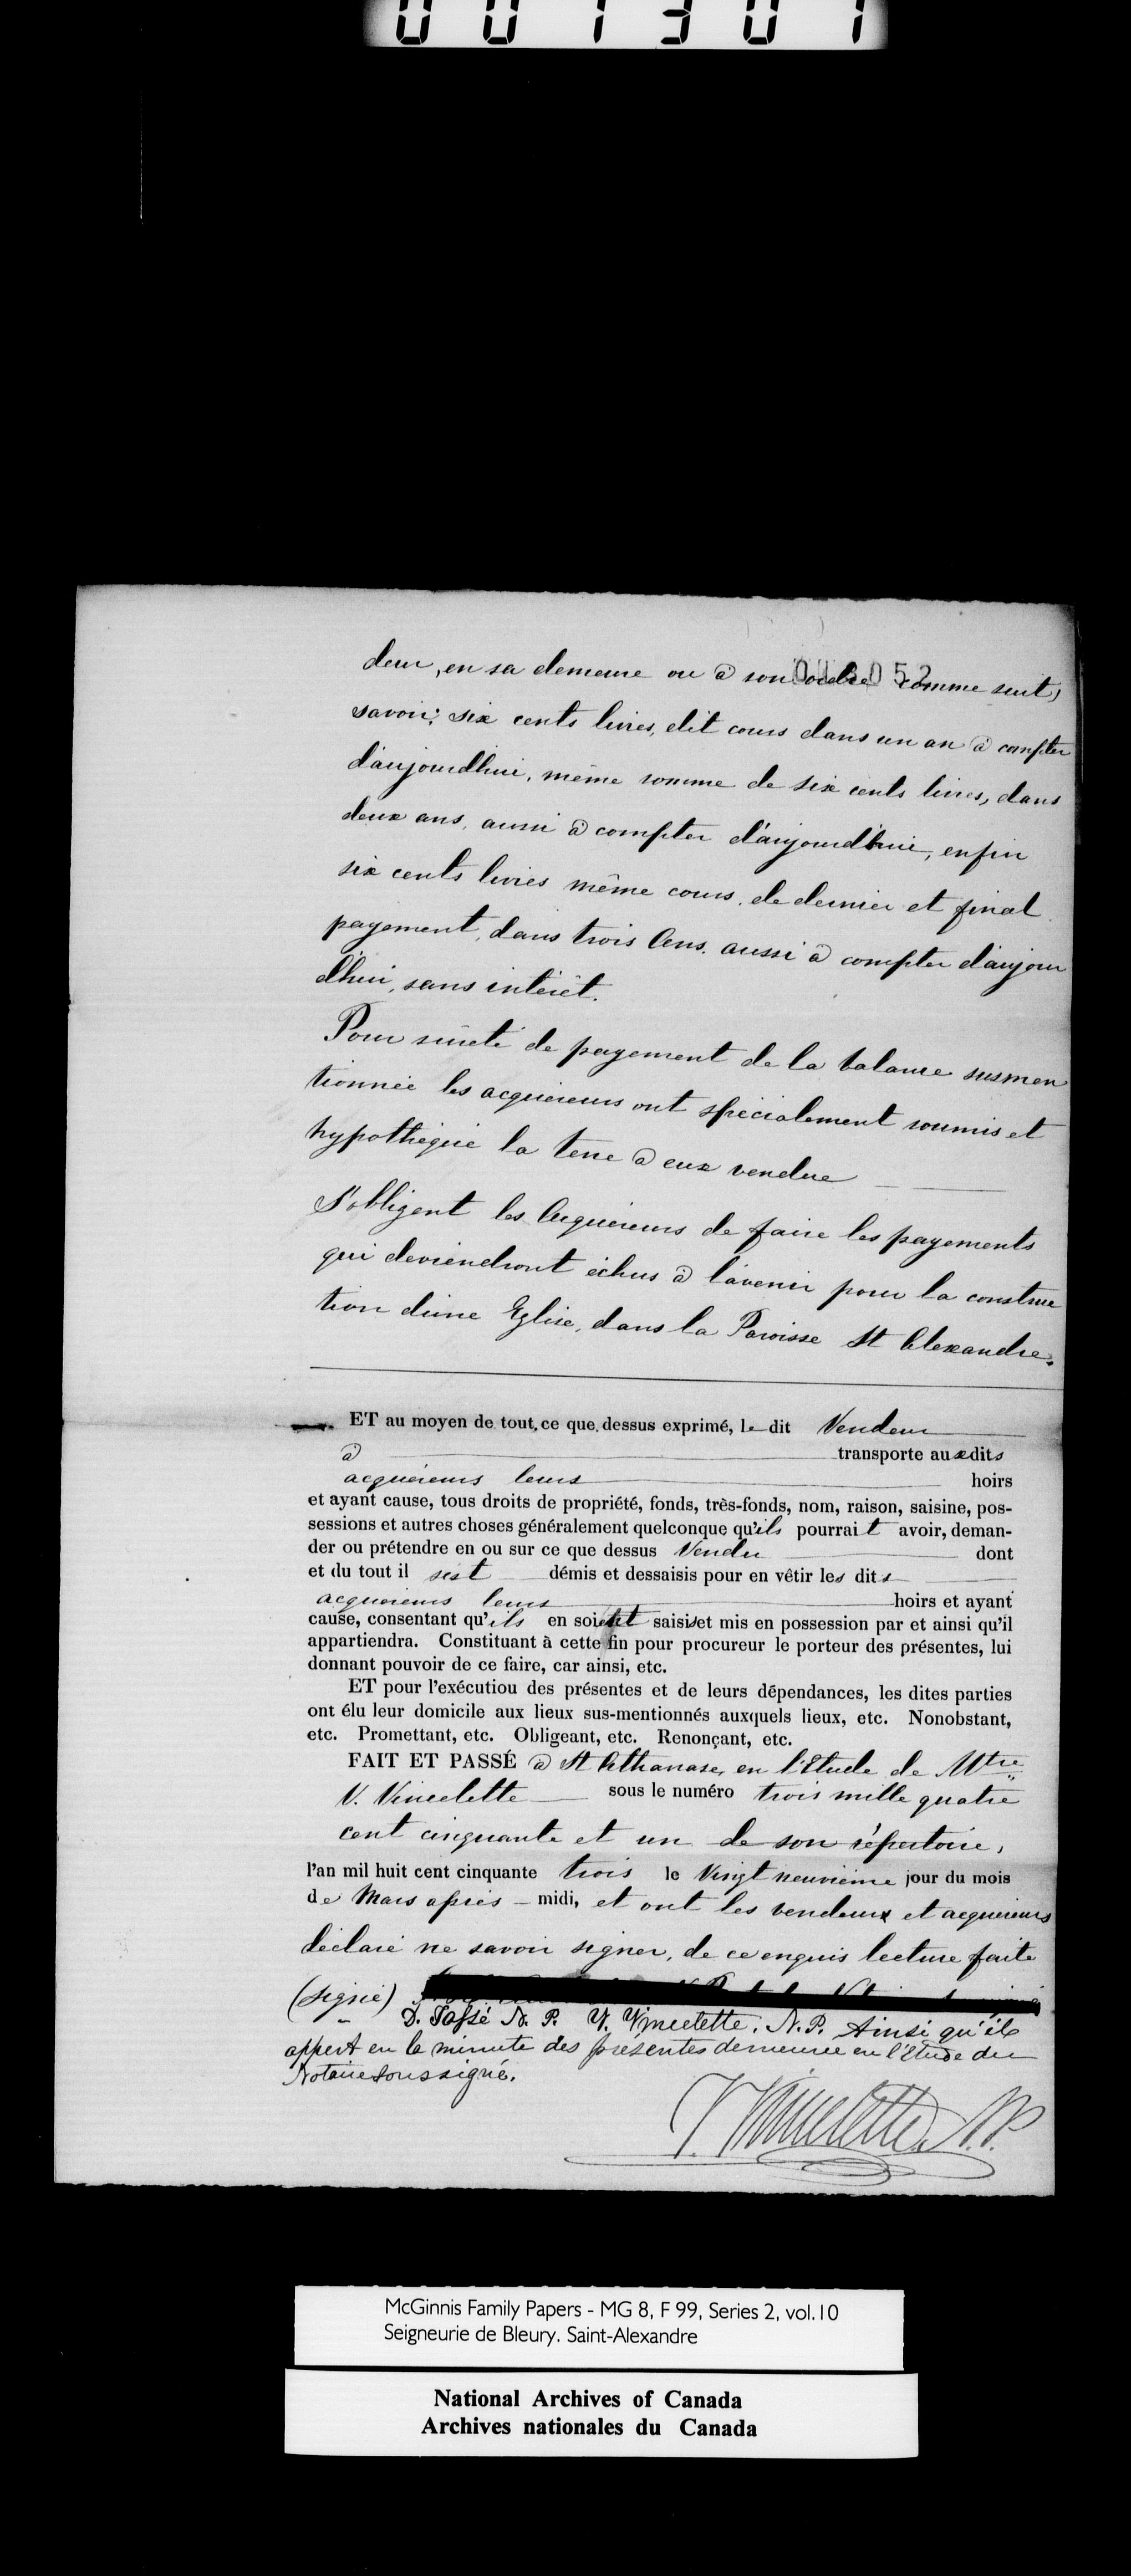 001301
deur, en sa demeure ou à son ordre comme suit,
savoir; six cents livres, dit cours dans un an à compter
d'aujourdhui, même somme de six cents livres, dans
deux ans, aussi à compter d'aujourd'hui, enfin
six cents livres même cours, de dernier et final
payement, dans trois Ans. aussi à compter d'aujour
d'hui, sans intérêt.
Pour sûreté de payement de la balance susmen
tionnée les acquéreurs ont spécialement soumis et
hypothéqué la terre à eux vendue
S'obligent les Acquéreurs de faire les payements
qui deviendront échus à l'avenir pour la construc
tion d'une Eglise, dans la Paroisse St Alexandre.
ET au moyen de tout, ce que dessus exprimé, le dit Vendeur
a transporte aux dits
acquéreurs leurs hoirs
et ayant cause, tous droits de propriété, fonds, très-fonds, nom, raison, saisine, pos-
sessions et autres choses généralement quelconque qu'ils pourrait avoir, deman-
der ou prétendre en ou sur ce que dessus Vendu dont
et du tout il sest démis et dessaisis pour en vêtir les dits
acquereurs leurs hoirs et ayant
cause, consentant qu'ils en soient saisis et mis en possession par et ainsi qu'il
appartiendra. Constituant à cette fin pour procureur le porteur des présentes, lui
donnant pouvoir de ce faire, car ainsi, etc.
ET pour l'exécutiou des présentes et de leurs dépendances, les dites parties
ont élu leur domicile aux lieux sus-mentionnés auxquels lieux, etc. Nonobstant,
etc. Promettant, etc. Obligeant, etc. Renonçant, etc.
FAIT ET PASSÉ à St Athanase, en l'Etude de Mtre
V. Vincelette sous le numéro trois mille quatre
cent cinquante et un de son répertoire,
l'an mil huit cent cinquante trois le Vingt neuvième jour du mois
de Mars après - midi, et ont les vendeurs et acquéreurs
déclaré ne savoir signer, de ce enquis lecture faite
(signé)
D. Tassé N. P. V. Vincelette, N. P. Ainsi qu'il
appert en la minute des présentes demeurée en l'Etude du
Notaire soussigné.
V. Vincelette N.P.
McGinnis Family Papers - MG 8, F 99, Series 2, vol.10
Seigneurie de Bleury. Saint-Alexandre
National Archives of Canada
Archives nationales du Canada